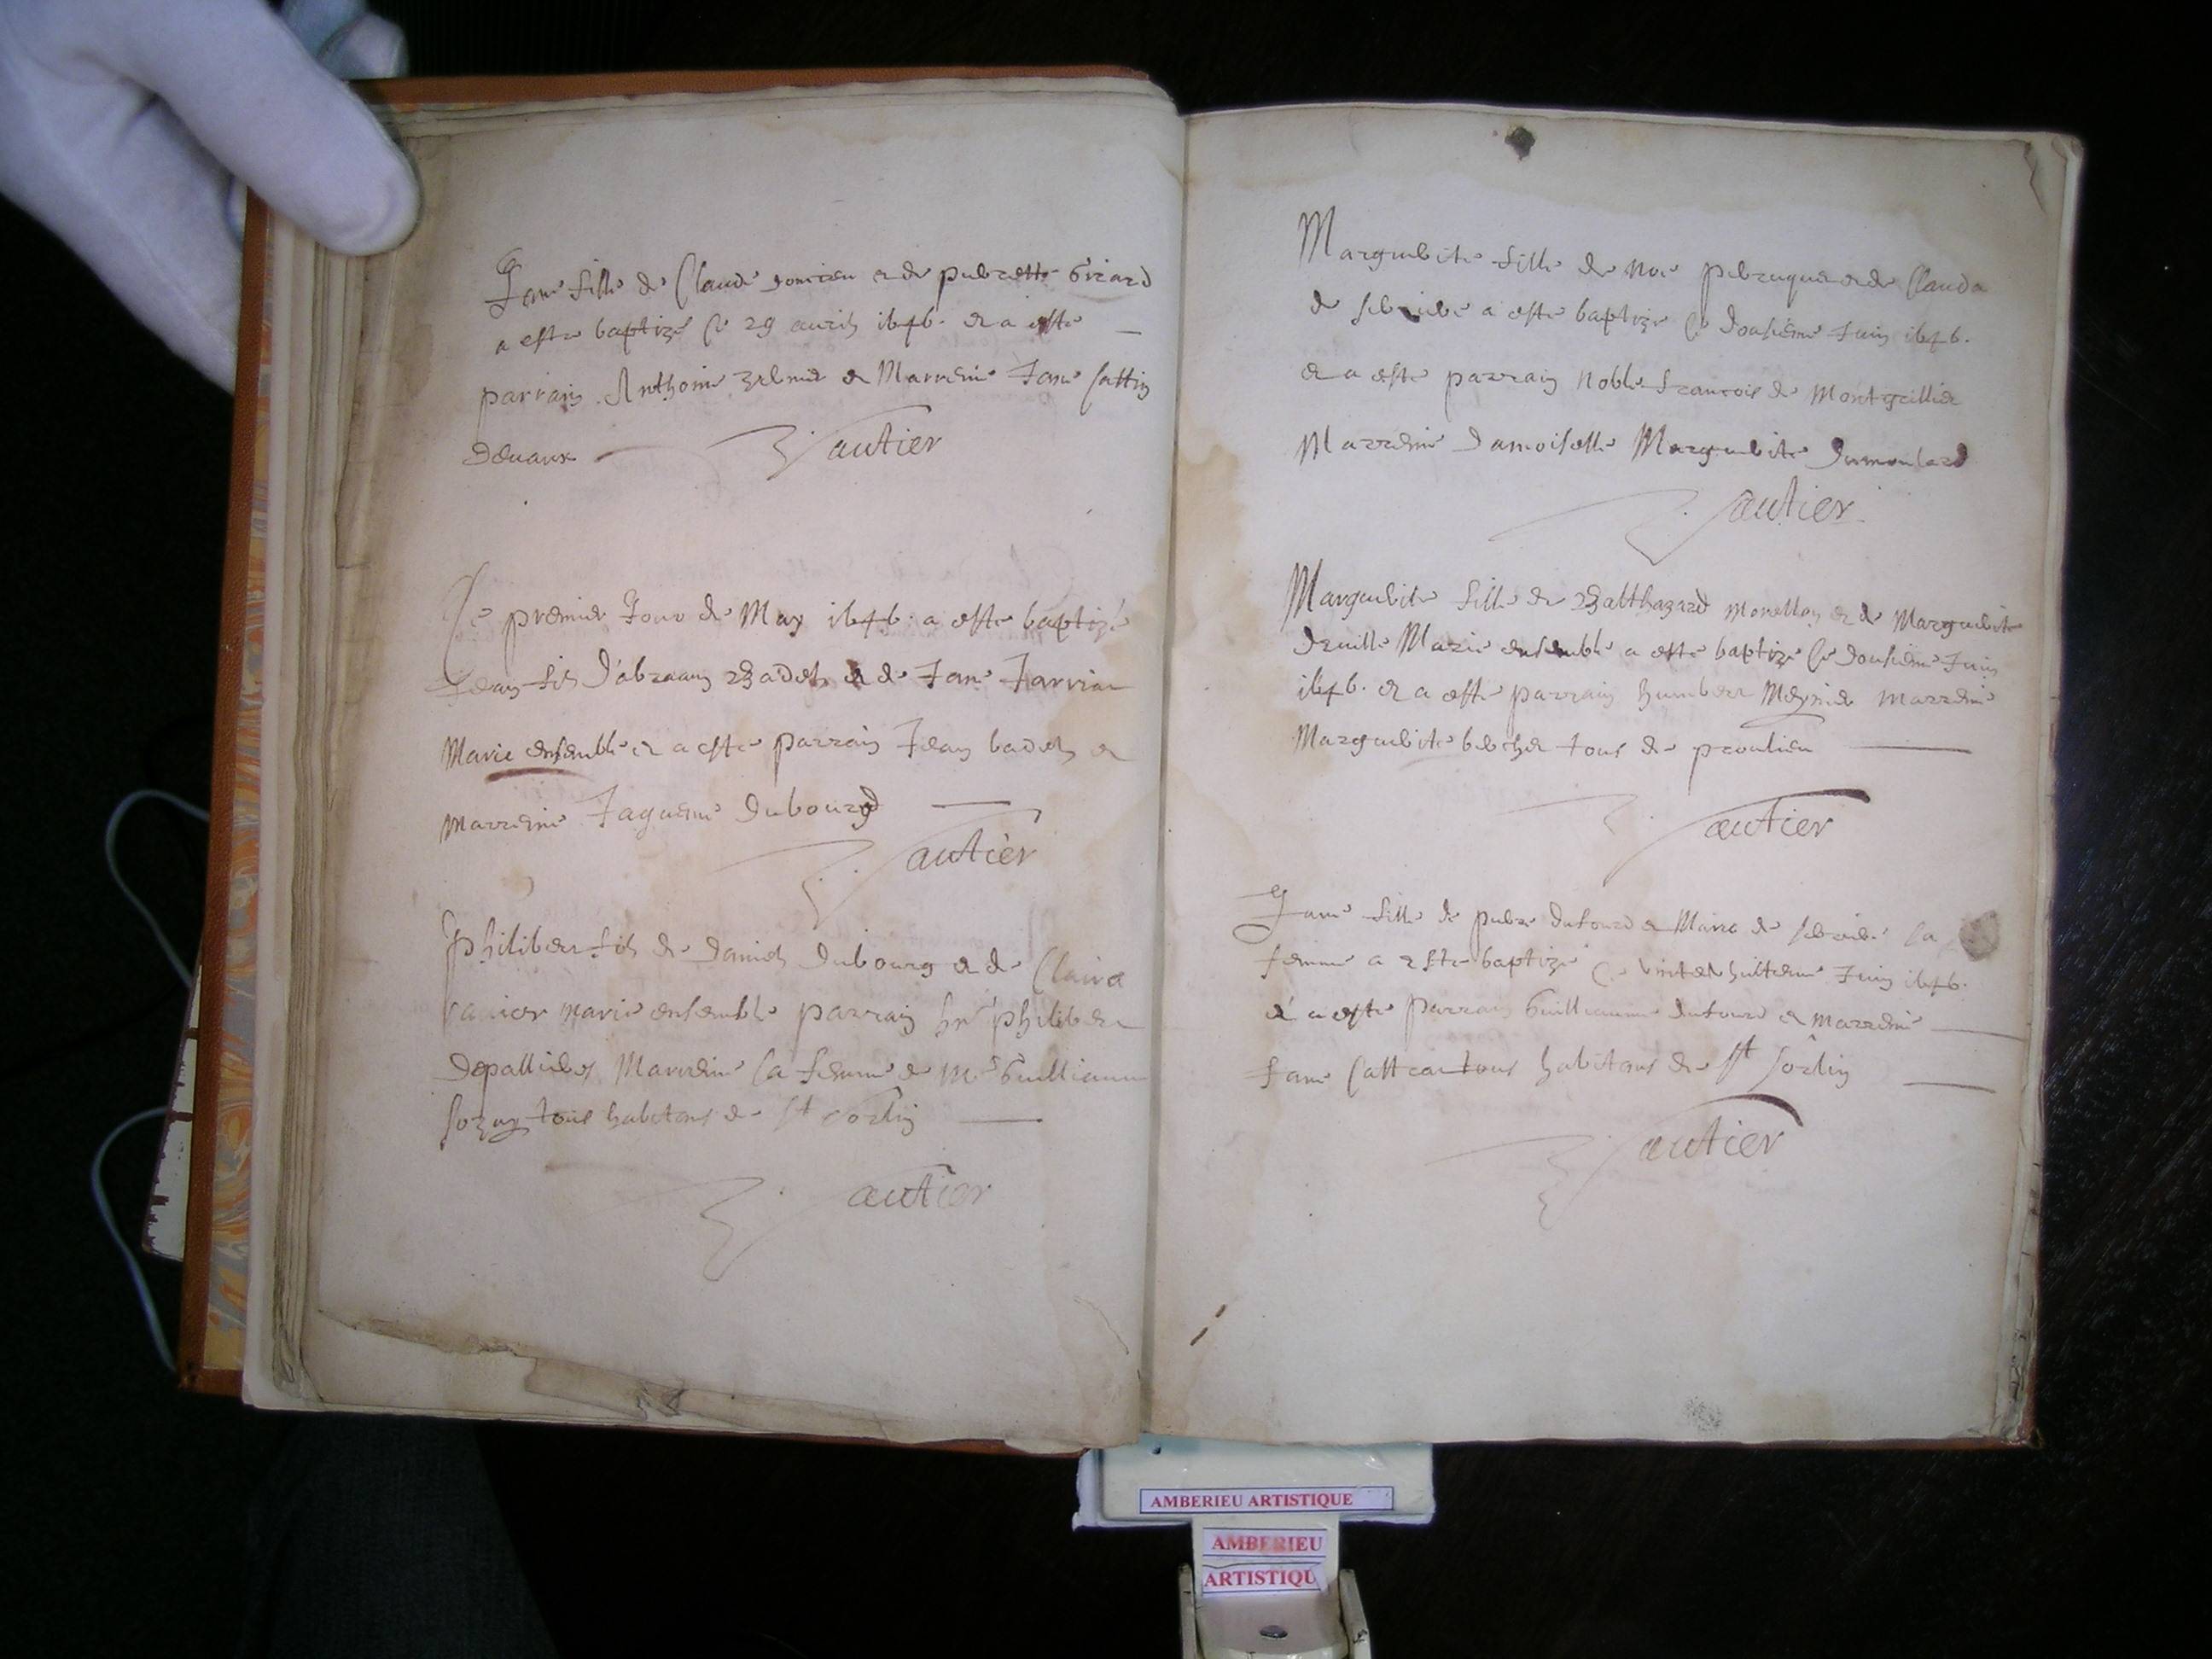 Jane fille de Claude et de pierrette Girard
a este baptizé le 29 auril 1646. et a este
parrain Anthoine et Marreine Jane Cattin
deuaux
Gautier
Le premier Jour de May 1646. a este baptizé
Jean fils d'abraam Badel et de Jane
Marie ensemble et a este parrain Jean badel et
Marreine Jaqueme dubourg
Gautier
philibert fils de daniel dubourg et de Claire
marie ensemble parrain philibert
depallieres Marreine la femme de Mre Guilliaume
tous habitans de St Sorlin
Gautier
Marguerite fille de Noe peruque et de Clauda
de seruiere a este baptizé le dousiéme Juin 1646.
et a este parrain Noble francois de Montgrillier
Marreine damoiselle Marguerite dumoulard
Gautier
Marguerite fille de Balthazard et de Marguerite
Marie ensemble a este baptizé le dousieme Juin
1646. et a este parrain humbert Meynier marreine
Marguerite tous de proulieu
Gautier
Jane fille de pierre dufour et Maria de seruiere sa
femme a este baptizé le vintethuiltieme Juin 1646.
et a este parrain Guilliaume dufour et marreine
Jane tous habitans de St Sorlin
Gautier
AMBERIEU ARTISTIQUE
AMBERIEU
ARTISTIQU